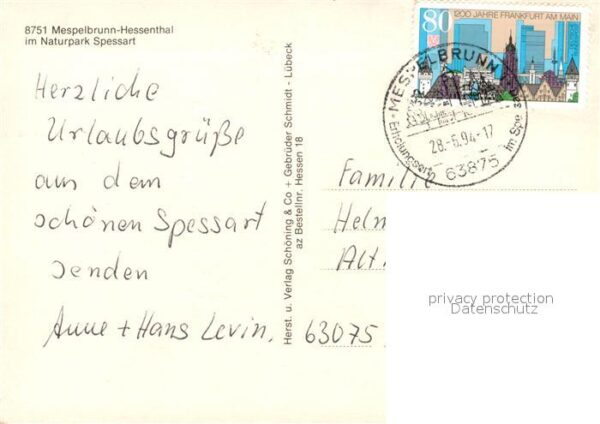 8751 Mespelbrunn-Hessenthal
im Naturpark Spessart
Herzliche
Urlaubsgrüße
aus dem
schönen Spessart
senden
Anne + Hans Levin.
Herst. u. Verlag Schöning & Co + Gebrüder Schmidt - Lübeck
az Bestellnr. Hessen 18
80
1200 JAHRE FRANKFURT AM MAIN
MESPELBRUNN
28.-6.94-17
63875
Erholungsort
im Spessart
Familie
Helm
Alt.
63075
privacy protection
Datenschutz